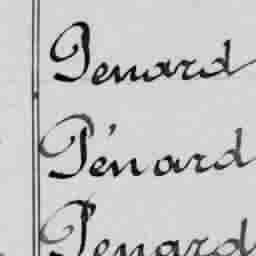 Penard
Pénard
Penard